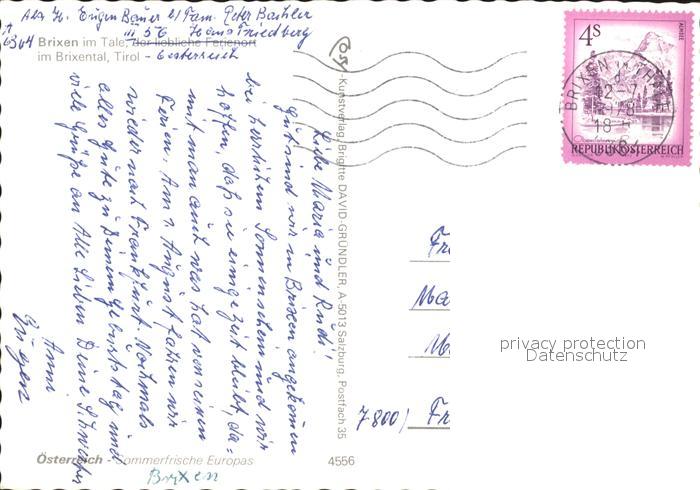 Abs. H. Eugen Bauer b/ Fam. Peter
6364
Brixen im Tale, der liebliche Ferienort
im Brixental, Tirol - Oesterreich
Liebe Maria und Rudi!
Gut sind wir in Brixen angekommen
bei herrlichem Sonnenschein und wir
hoffen, daß sie einige Zeit bleibt, da=
mit man auch was hat von seinen
Ferien. Am 1 August fahren wir
wieder nach Frankfurt. Nochmals
alles Gute zu Deinem Geburtstag und
viele Grüße an Alle Lieben Deine Schwester
Anni
Eugen
Kunstverlag Brigitte DAVID-GRÜNDLER, A-5013 Salzburg, Postfach 35
Österreich - Sommerfrische Europas
Brixen
4556
4S
ALMSEE
REPUBLIK ÖSTERREICH
BRIXEN IM THALE
12-7
18
Fr
Ma
7800/ Fr
privacy protection
Datenschutz